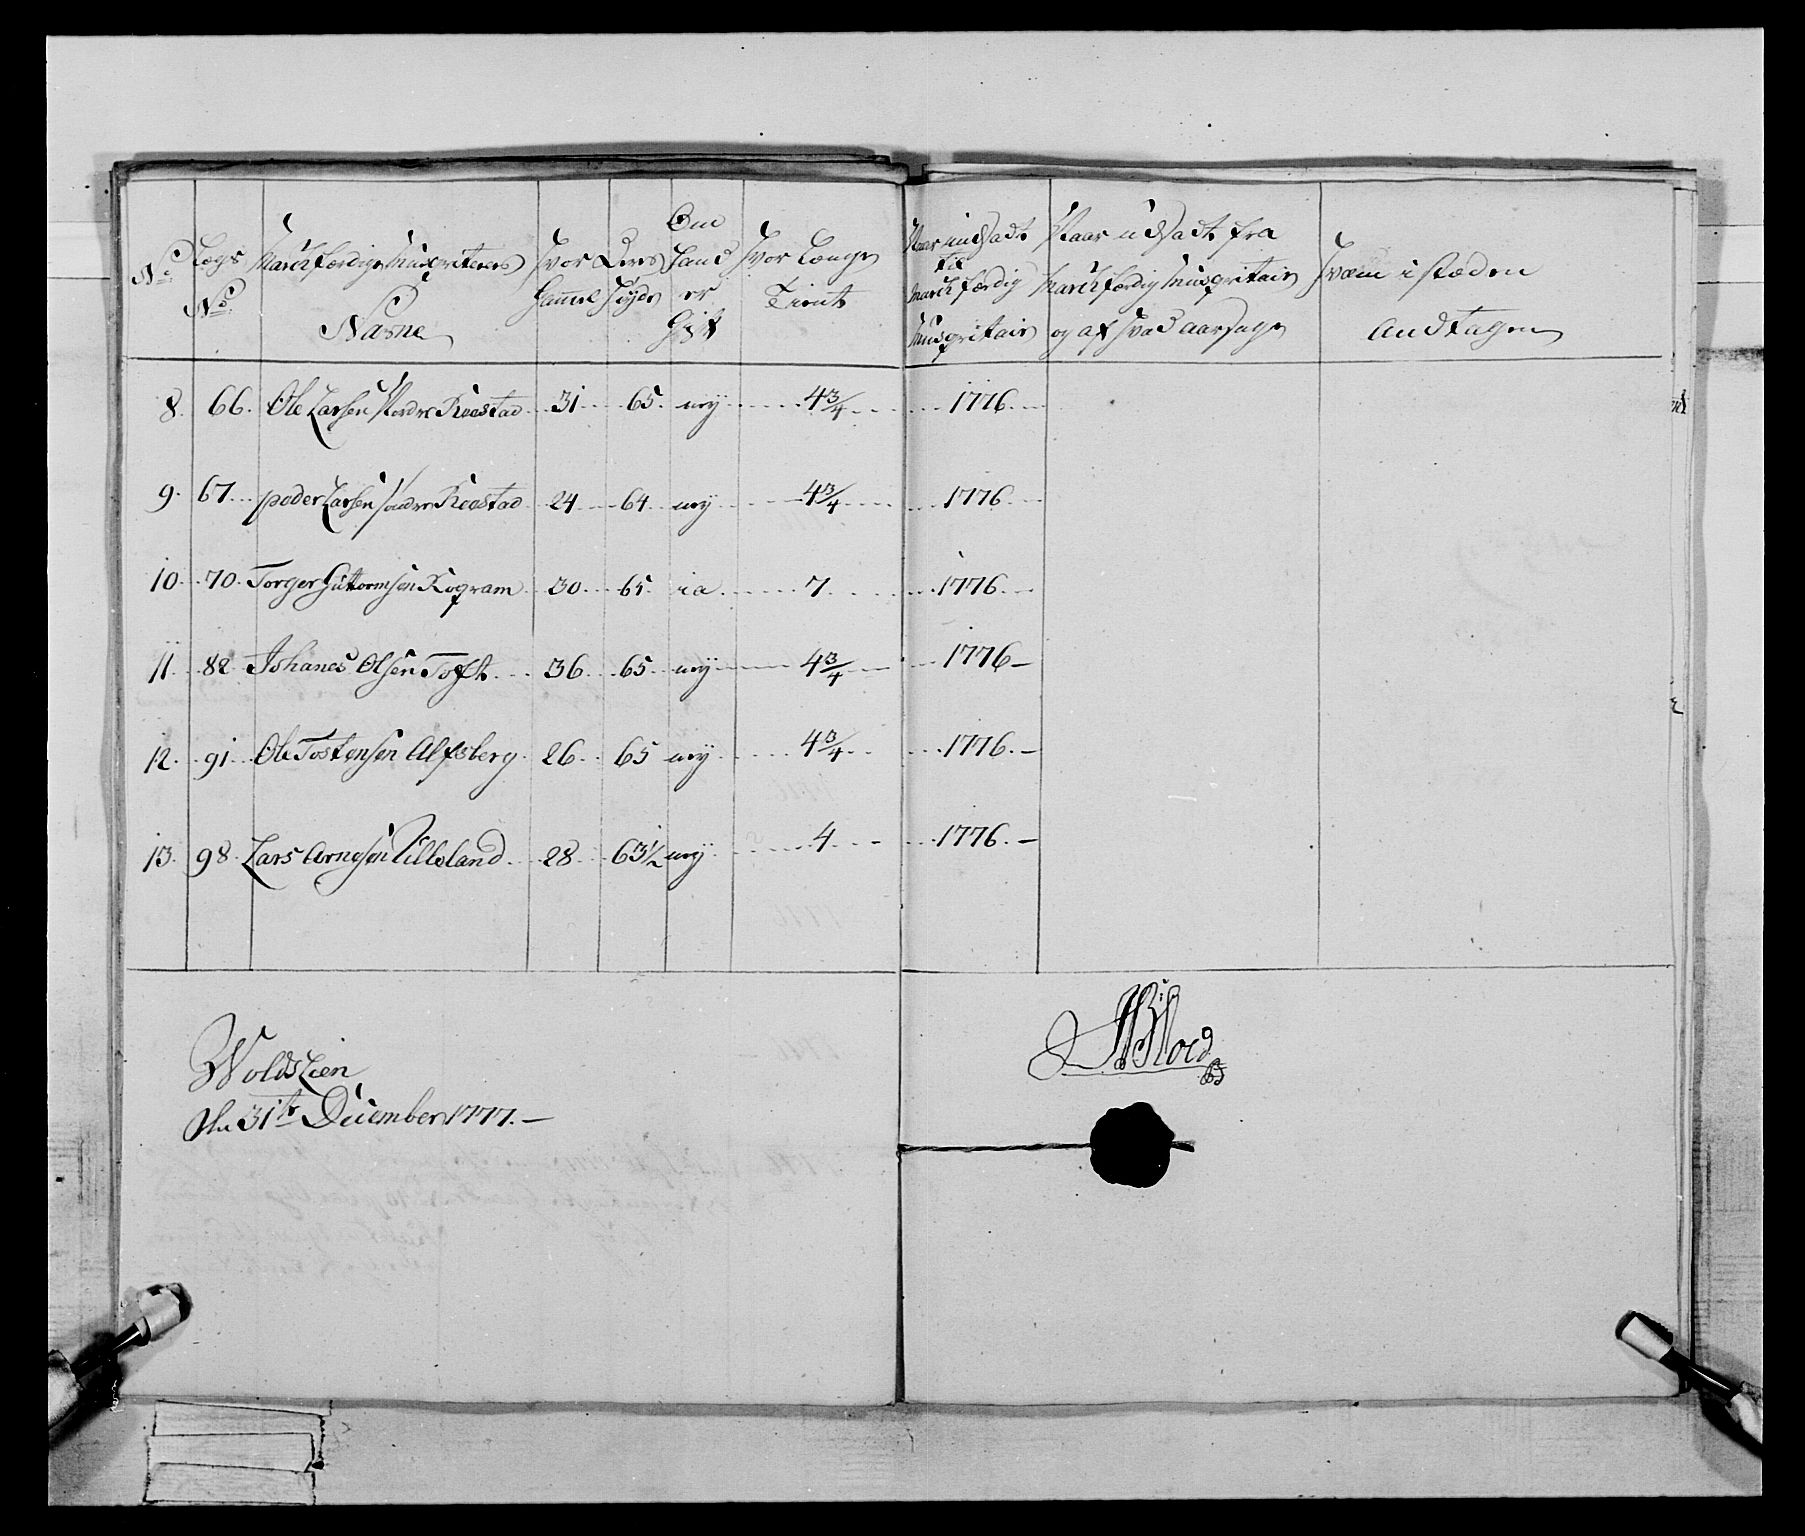 No. Lægs No. Marchfærdige Musqviterers Navne Hvor Gammel Deres Høyde Om Hand er Gift Hvor Længe Tient Naar indsadt til Marchfærdig Musqviteir Naar udsadt fra Marchfærdig Musqviteir og af hvad aarsage Hvem i stæden Andtagen
8. 66. Ole Larsen Nordre Kaastad 31 65. nej 4 3/4 1776.
9. 67. peder Larsen søndre Kaastad 24 64 nej 4 3/4 1776.
10. 70. Torger Guttormsen Rogram 30 65. ia 7 1776.
11. 82 Johanes Olsen Toft 36 65 nej 4 3/4 1776
12. 91 Ole Tostensen Alfsberg 26 65 nej 4 3/4 1776.
13. 98. Lars Arnesen Lilleland 28 63 1/2 nej 4 1776.
Woldslien
den 31te December 1777.